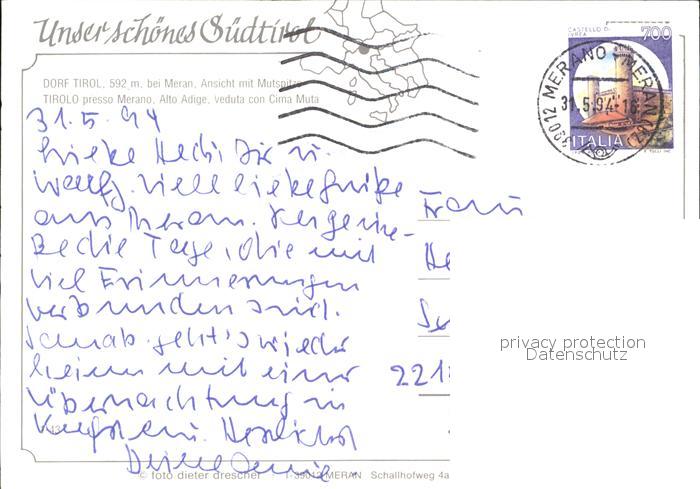 Unser schönes Südtirol
DORF TIROL, 592 m, bei Meran, Ansicht mit Mutspitze
TIROLO presso Merano, Alto Adige, veduta con Cima Muta
31.5.94
Liebe Hedi, Dir u.
viele liebe Grüße
aus Meran.
Tage, die mit
viel Erinnerungen
verbunden sind.
geht's wieder
heim mit einer
Übernachtung in
Kufstein. Herzlichst
Frau
He
221
CASTELLO DI
IVREA
700
ITALIA
39012 MERANO - MERAN (BZ)
31.5.94-16
privacy protection
Datenschutz
© foto dieter drescher I-39012 MERAN Schallhofweg 4a